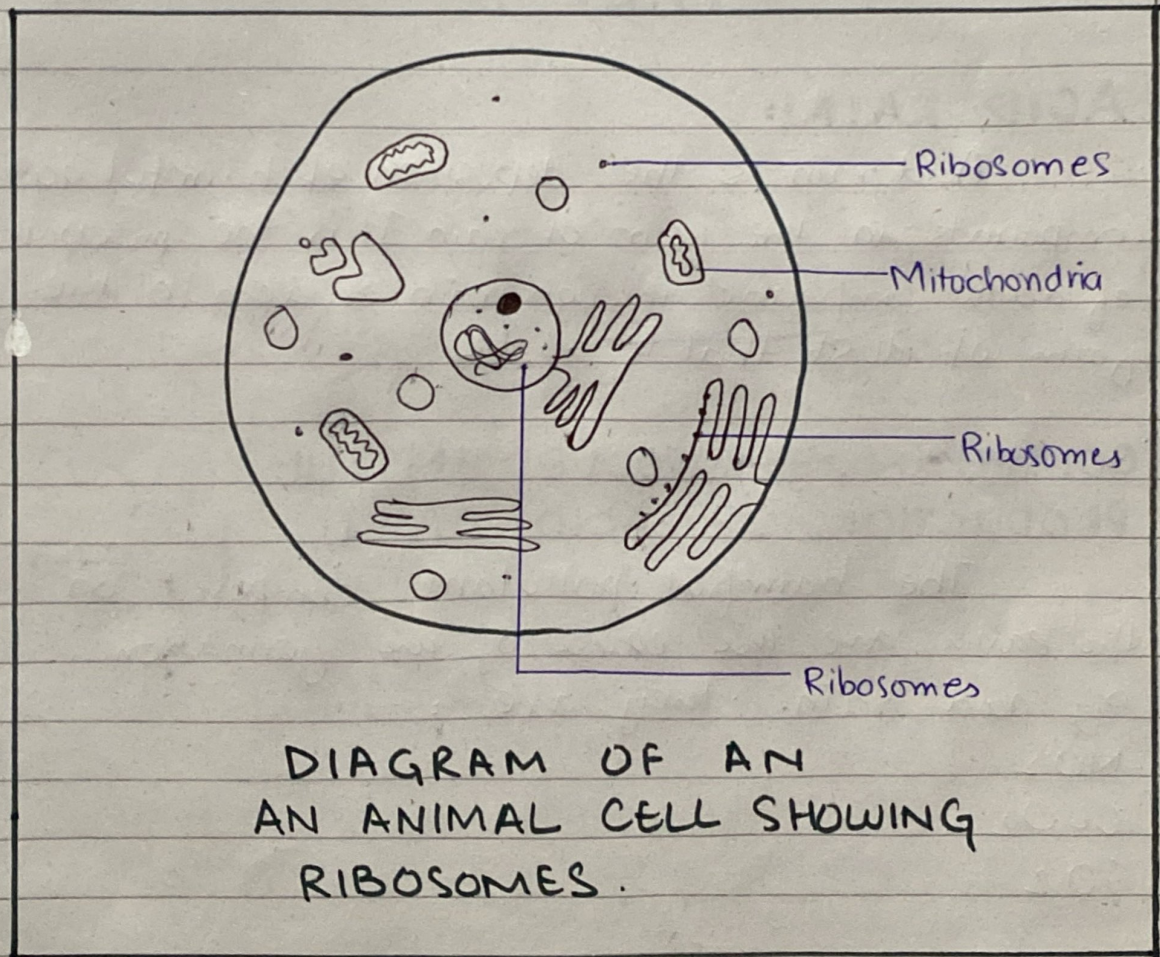 Ribosomes
Mitochondria
Ribosomes
Ribosomes
DIAGRAM OF AN
AN ANIMAL CELL SHOWING
RIBOSOMES.